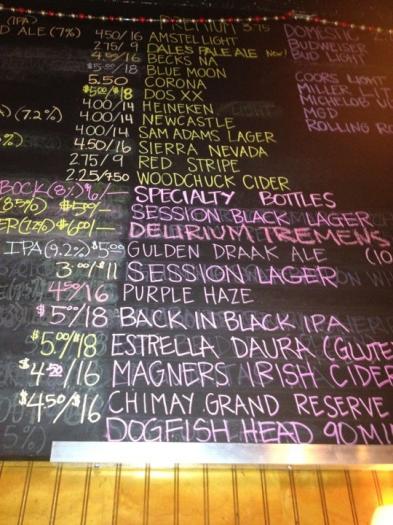 (IPA) PREMIUM 3.75 DOMESTIC
D ALE (7%) 4.50/16 AMSTEL LIGHT BUDWEISER
2.75/9 DALE'S PALE ALE New! BUD LIGHT
BECKS NA
$5.00/18 BLUE MOON
5.50 CORONA COORS LIGHT
$5.00/$18 DOS XX MILLER LITE
(7.2%) 4.00/14 HEINEKEN MICHELOB U
4.00/14 NEWCASTLE MGD
%) 4.00/14 SAM ADAMS LAGER ROLLING RO
4.50/16 SIERRA NEVADA
2.75/9 RED STRIPE
2.25/7.50 WOODCHUCK CIDER
BOCK (8%) 9/— SPECIALTY BOTTLES
8.5%) SESSION BLACK LAGER
ER (12%) $6.00/— DELIRIUM TREMENS
IPA (9.2%) $5.00 GULDEN DRAAK ALE (10
3.00/$11 SESSION LAGER
4.50/16 PURPLE HAZE
$5.00/18 BACK IN BLACK IPA
$5.00/$18 ESTRELLA DAURA (GLUTE
$4.50/16 MAGNERS IRISH CIDER
$4.50/$16 CHIMAY GRAND RESERVE
DOGFISH HEAD 90 MI